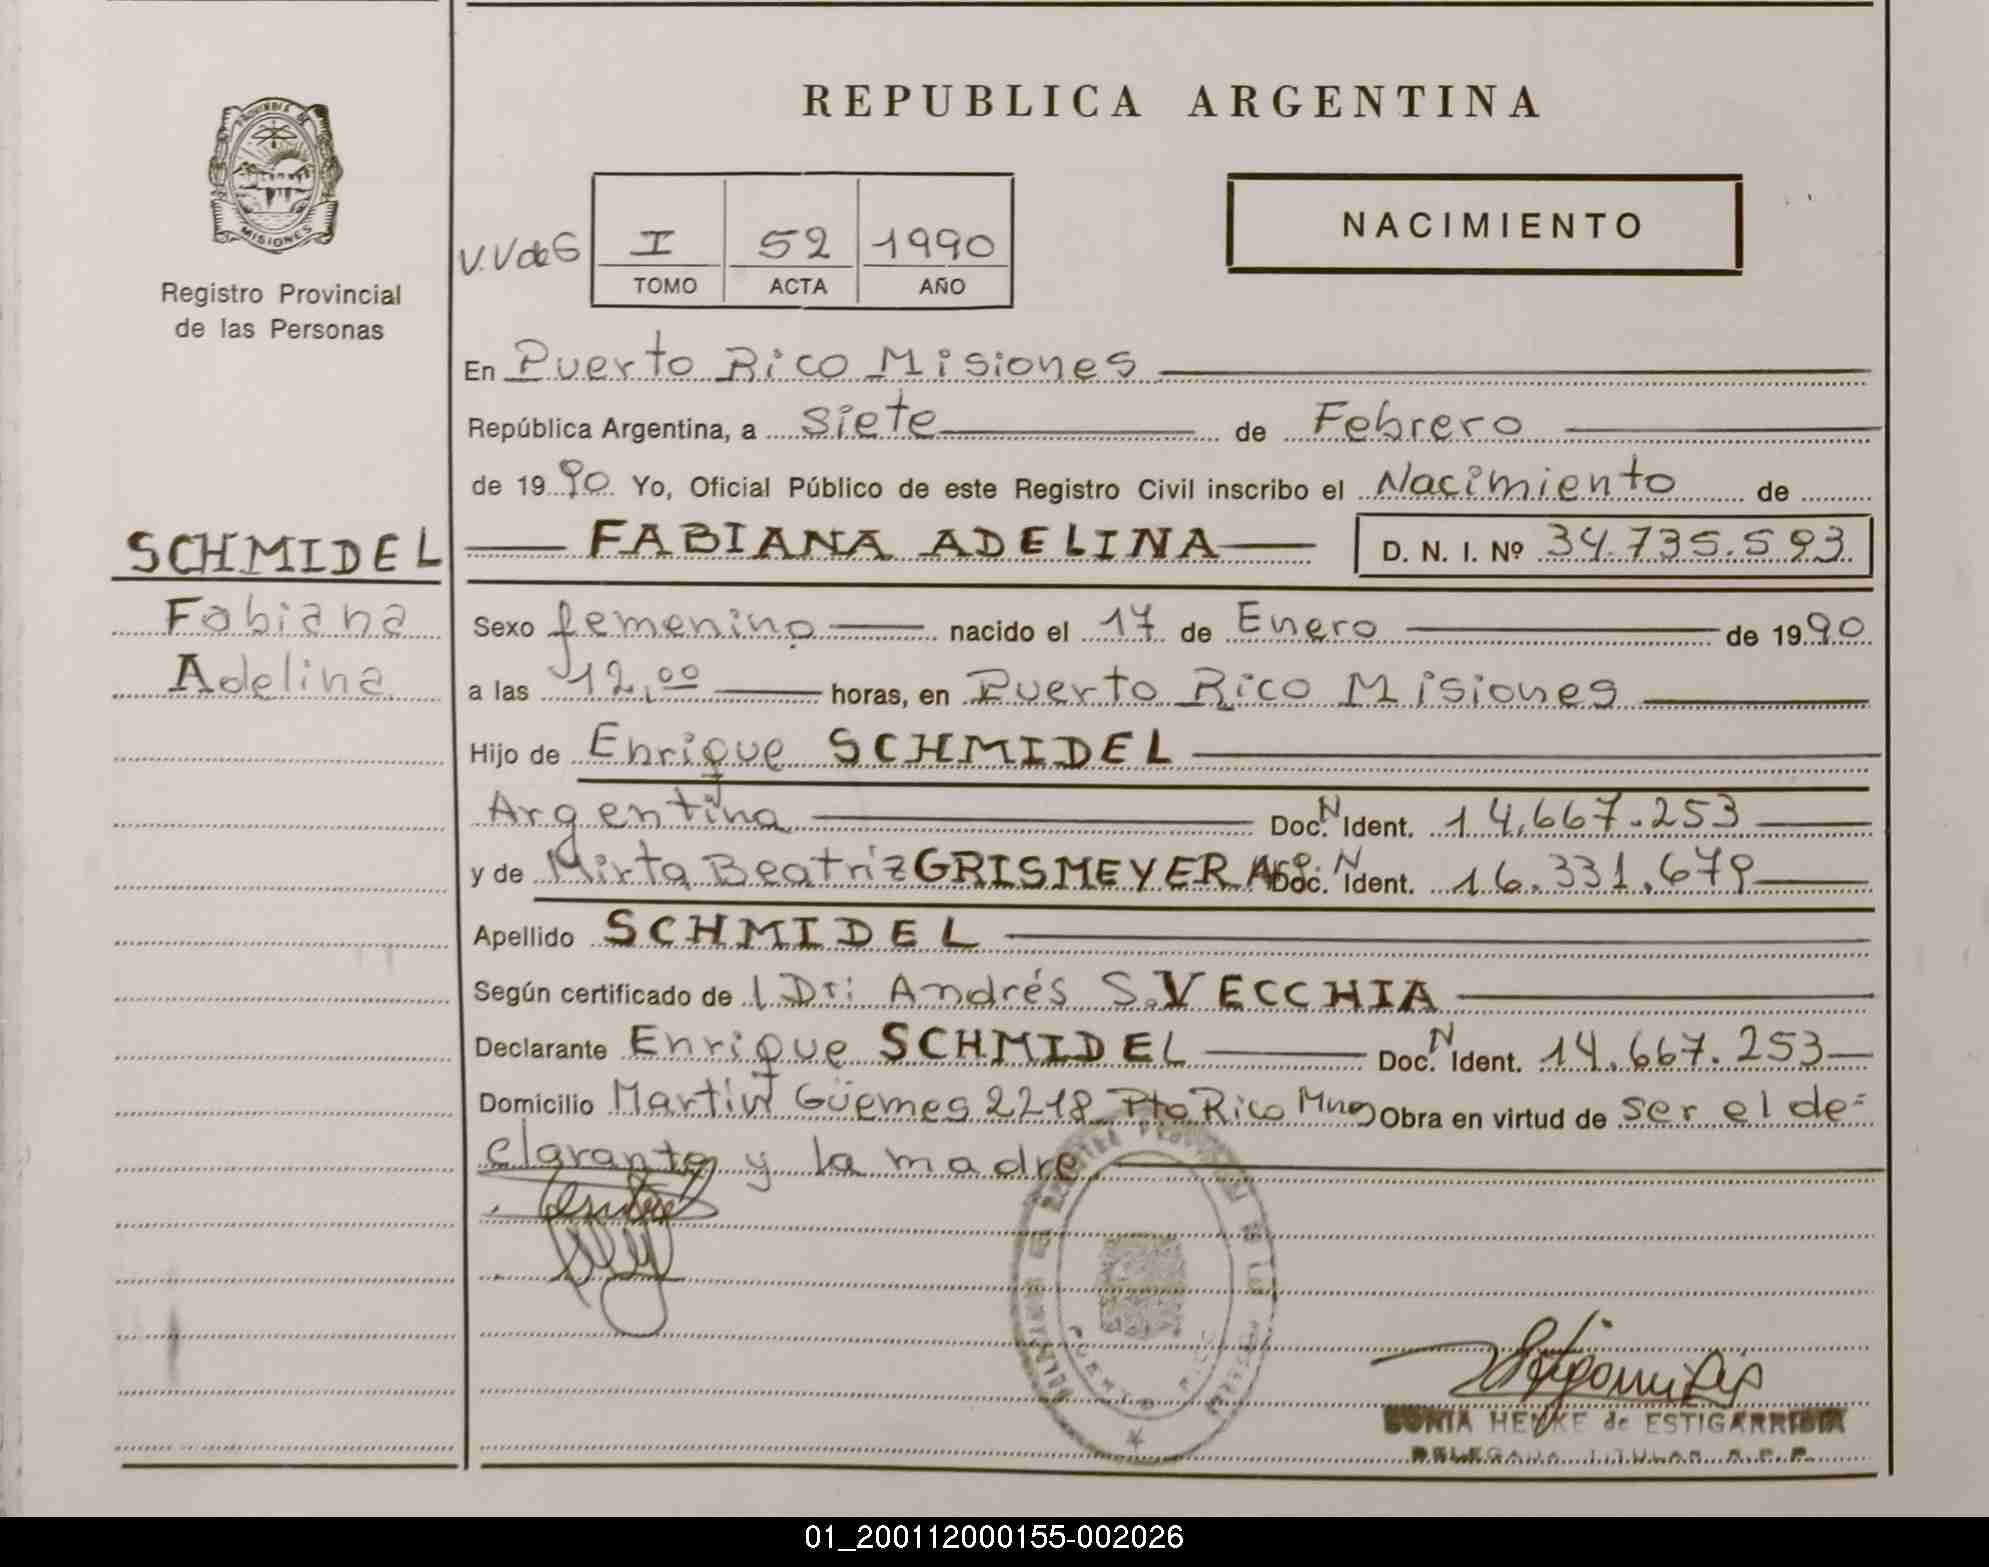 REPUBLICA ARGENTINA
NACIMIENTO
PROVINCIA DE
MISIONES
Registro Provincial
de las Personas
V.V de S
I 52 1990
TOMO ACTA AÑO
En Puerto Rico Misiones
República Argentina, a siete de Febrero
de 1990 Yo, Oficial Público de este Registro Civil inscribo el Nacimiento de
SCHMIDEL
FABIANA ADELINA D. N. I. Nº 34.735.593
Fabiana
Adelina
Sexo femenino nacido el 17 de Enero de 1990
a las 12,00 horas, en Puerto Rico Misiones
Hijo de Enrique SCHMIDEL
Argentina Doc. N Ident. 14.667.253
y de Mirta Beatriz GRISMEYER Arg. Doc. N Ident. 16.331.679
Apellido SCHMIDEL
Según certificado de l Dr: Andrés S. VECCHIA
Declarante Enrique SCHMIDEL Doc. N Ident. 14.667.253
Domicilio Martin Güemes 2218 Pto Rico Mnes Obra en virtud de ser el de=
clarante y la madre
PUERTO RICO
SONIA HENKE de ESTIGARRIBIA
DELEGADA TITULAR R.P.P.
01_200112000155-002026